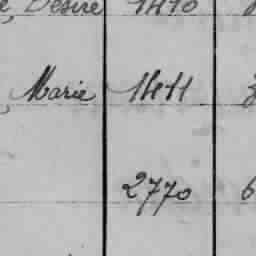 , Désiré 1410
, Marie 1411
2770 6